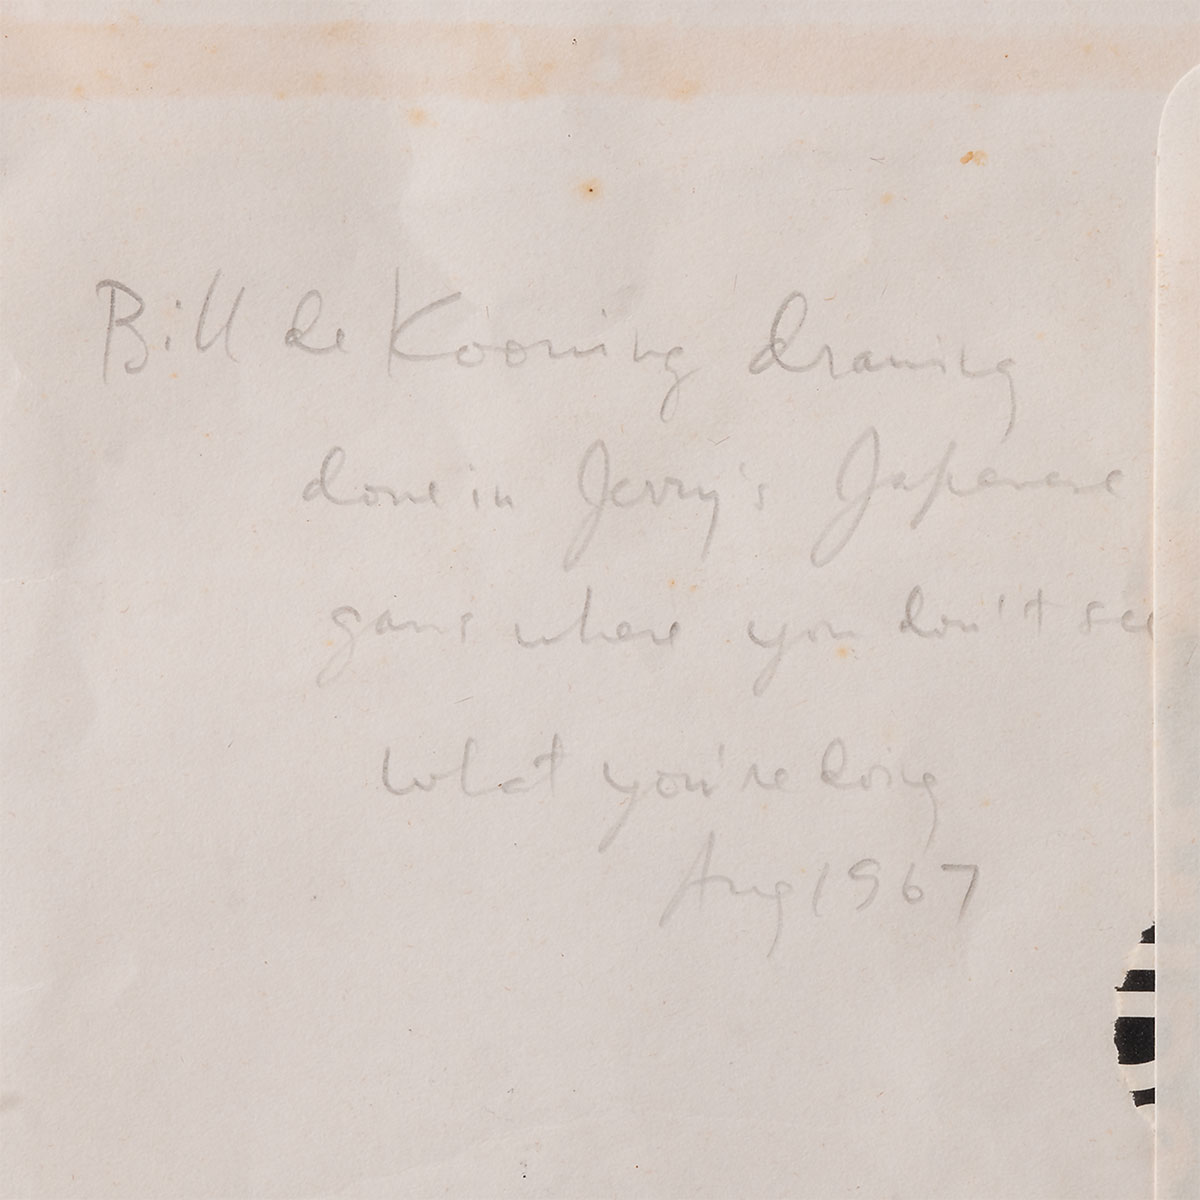 Bill de Kooning drawing
done in Jerry's Japanese
game where you don't see
what you're doing
Aug 1967